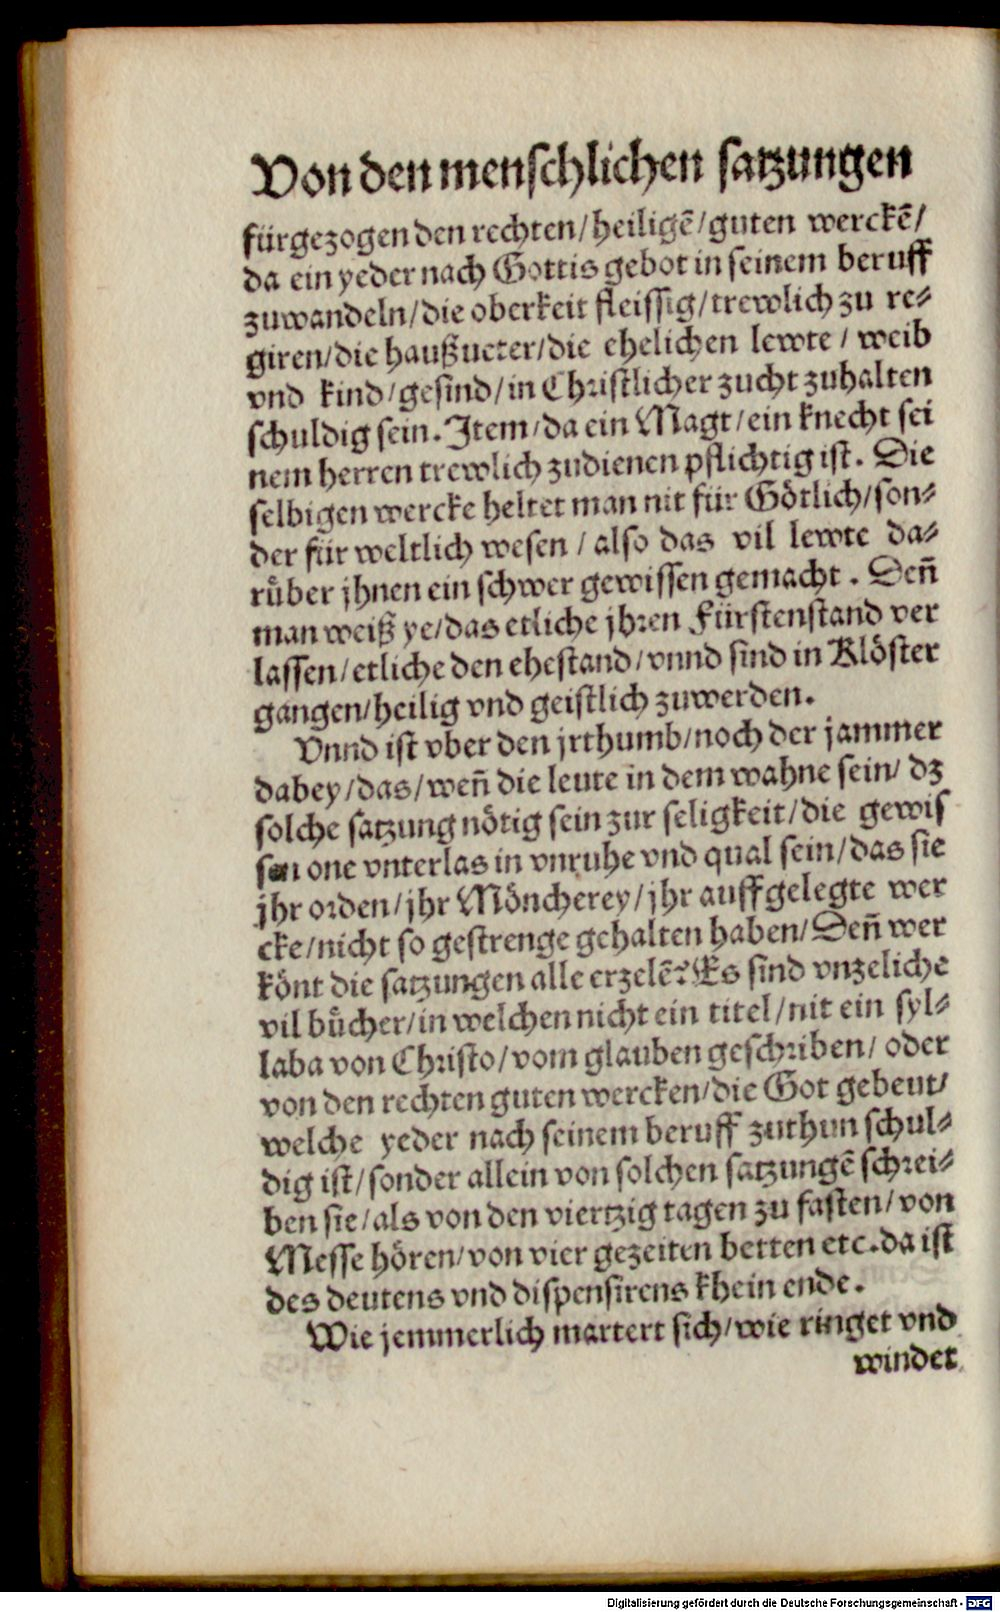 Von den menschlichen satzungen
fürgezogen den rechten/heiligẽ/guten werckẽ/
da ein yeder nach Gottis gebot in seinem beruff
zuwandeln/die oberkeit fleissig/trewlich zu re-
giren/die haußueter/die ehelichen lewte/weib
vnd kind/gesind/in Christlicher zucht zuhalten
schuldig sein. Item/da ein Magt/ein knecht sei
nem herren trewlich zudienen pflichtig ist. Die
selbigen wercke heltet man nit für Götlich/son-
der für weltlich wesen/also das vil lewte da-
rüber jhnen ein schwer gewissen gemacht. Deñ
man weiß ye/das etliche jhren Fürstenstand ver
lassen/etliche den ehestand/vnnd sind in Klöster
gangen/heilig vnd geistlich zuwerden.
Vnnd ist vber den jrthumb/noch der jammer
dabey/das/weñ die leute in dem wahne sein/dz
solche satzung nötig sein zur seligkeit/die gewis
sen one vnterlas in vnruhe vnd qual sein/das sie
jhr orden/jhr Möncherey/jhr auffgelegte wer
cke/nicht so gestrenge gehalten haben/Deñ wer
könt die satzungen alle erzelẽ? Es sind vnzeliche
vil bücher/in welchen nicht ein titel/nit ein syl-
laba von Christo/vom glauben geschriben/oder
von den rechten guten wercken/die Got gebeut/
welche yeder nach seinem beruff zuthun schul-
dig ist/sonder allein von solchen satzungẽ schrei-
ben sie/als von den viertzig tagen zu fasten/von
Messe hören/von vier gezeiten betten etc. da ist
des deutens vnd dispensirens khein ende.
Wie jemmerlich martert sich/wie ringet vnd
windet
Digitalisierung gefördert durch die Deutsche Forschungsgemeinschaft - DFG